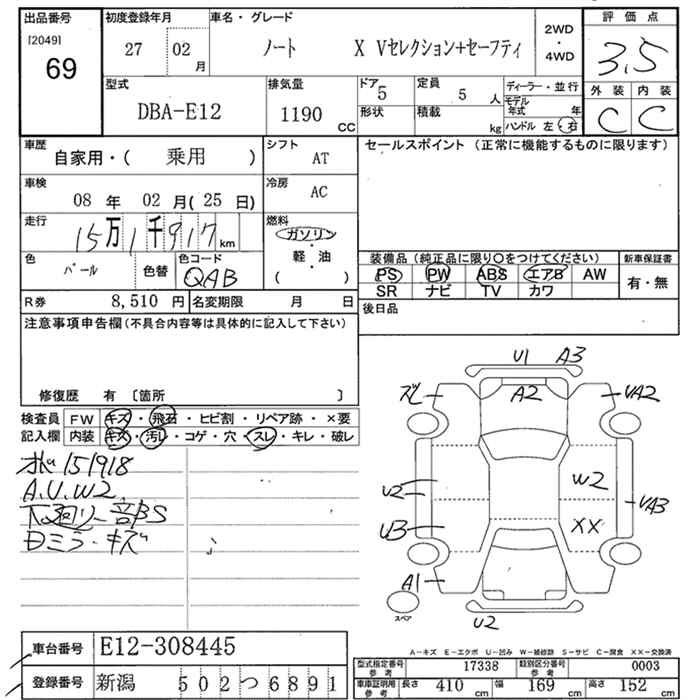 出品番号
[2049]
69
初度登録年月
27 02 月
車名・グレード
ノート X Vセレクション+セーフティ
2WD
・
4WD
評価点
3.5
外装 内装
C C
型式
DBA-E12
排気量
1190 CC
ドア 5
形状
定員 5 人
積載 kg
ディーラー・並行
モデル
年式 年
ハンドル 左・右
車歴
自家用・( 乗用 )
シフト
AT
車検
08 年 02 月(25 日)
冷房
AC
走行
15万1千917 km
燃料
ガソリン
・
軽・油
・
( )
色
パール
色替
色コード
QAB
R券 8,510 円
名変期限 月 日
セールスポイント (正常に機能するものに限ります)
装備品 (純正品に限り〇をつけてください)
新車保証書
PS PW ABS エアB AW
SR ナビ TV カワ
有・無
後日品
注意事項申告欄(不具合内容等は具体的に記入して下さい)
修復歴 有 〔箇所 〕
検査員
記入欄
FW キズ・飛石・ヒビ割・リペア跡・×要
内装 キズ・汚レ・コゲ・穴・スレ・キレ・破レ
151918
A.U.W2
下廻り一部S
Dミラーキズ
U1 A3
ズレ A2 VA2
U2 W2 VA3
UB XX
A1
スペア
U2
A-キズ E-エクボ U-凹み W-補修跡 S-サビ C-腐食 XX-交換済
車台番号 E12-308445
登録番号 新潟 502つ6891
型式指定番号
参考
17338
類別区分番号
参考
0003
車庫証明用
参考
長さ 410 cm 幅 169 cm 高さ 152 cm